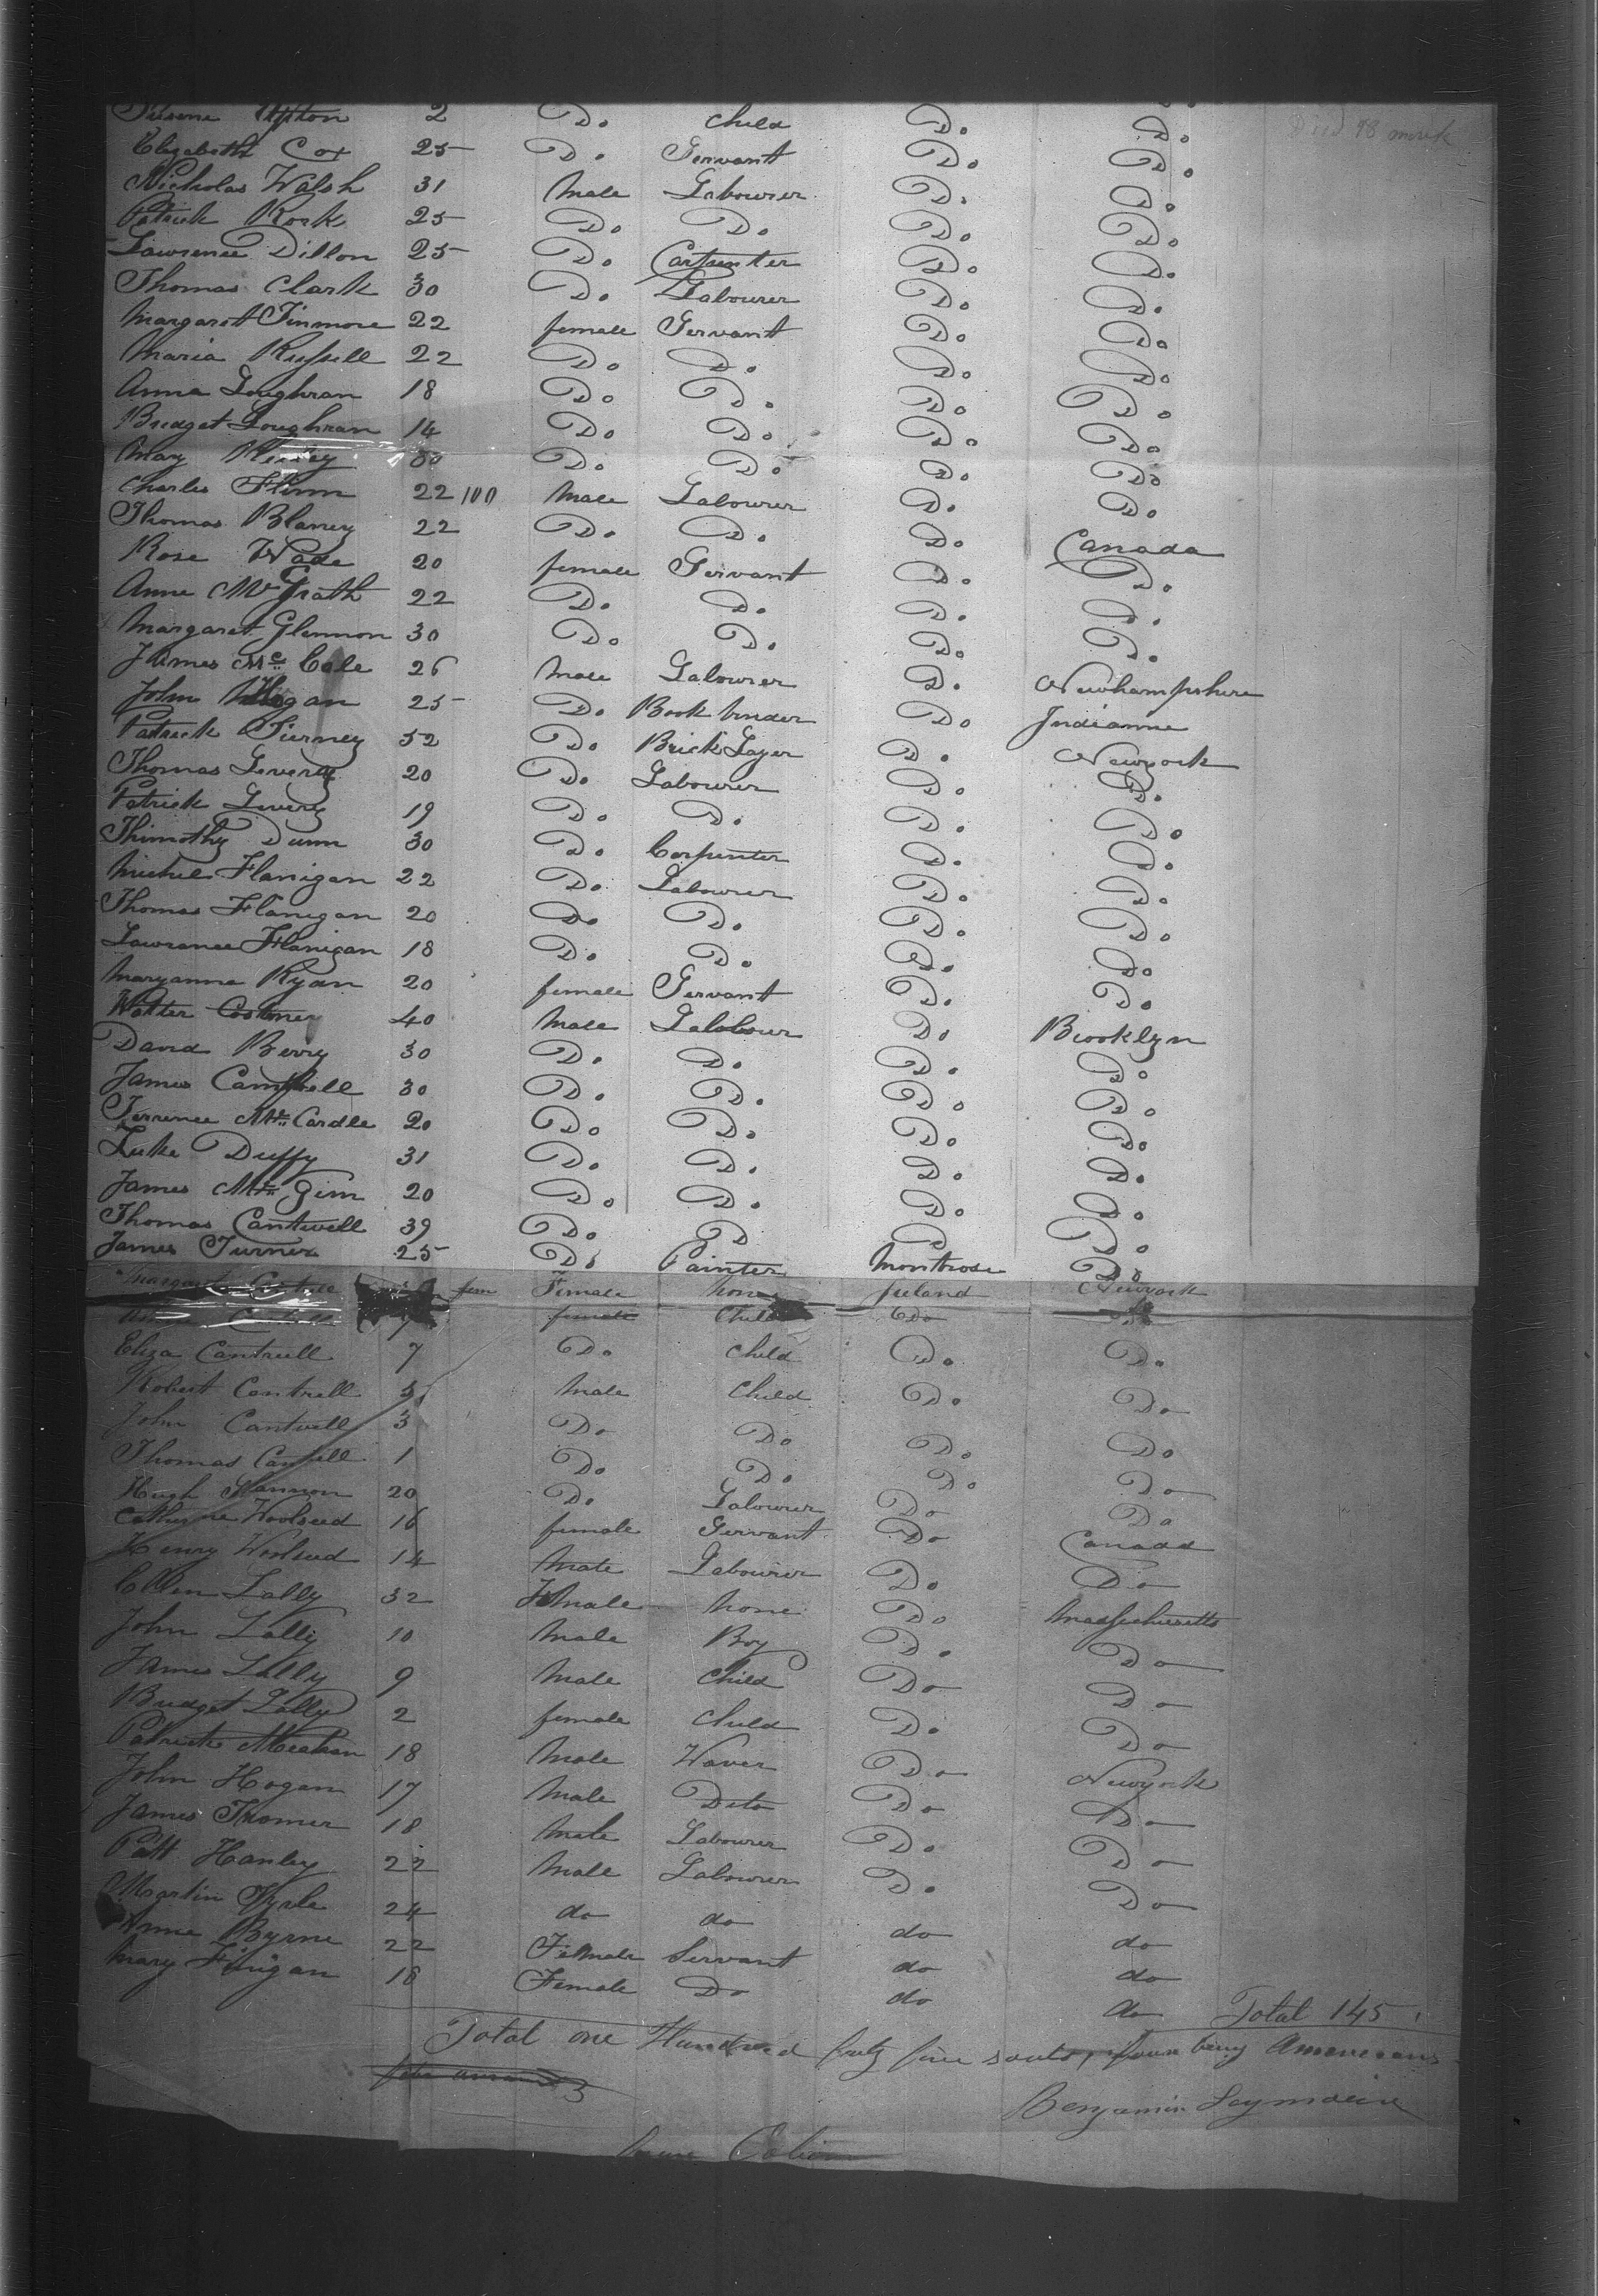 Upton 2 Do. child Do. Do.
Elizabeth Cox 25 Do. Servant Do. Do.
Nicholas Walsh 31 Male Labourer Do. Do.
Patrick Rork 25 Do. Do. Do. Do.
Lawrence Dillon 25 Do. Carpenter Do. Do.
Thomas Clark 30 Do. Labourer Do. Do.
Margaret Finmore 22 female Servant Do. Do.
Maria Russell 22 Do. Do. Do. Do.
Anna Loughran 18 Do. Do. Do. Do.
Bridget Loughran 14 Do. Do. Do. Do.
Mary 30 Do. Do. Do. Do.
Charles Flinn 22 100 Male Labourer Do. Do.
Thomas Blaney 22 Do. Do. Do. Canada
Rose Wade 20 female Servant Do. Do.
Anne McGrath 22 Do. Do. Do. Do.
Margaret Glennon 30 Do. Do. Do. Do.
James Mc Cale 26 Male Labourer Do. Newhampshire
John Hogan 25 Do. Book binder Do. Indianne
Patrick Tierney 52 Do. Brick Layer Do. Newyork
Thomas Leverty 20 Do. Labourer Do. Do.
Patrick Levery 19 Do. Do. Do. Do.
Thimothy Dunn 30 Do. Corpenter Do. Do.
Michel Flanigan 22 Do. Labourer Do. Do.
Thomas Flanigan 20 Do. Do. Do. Do.
Lawrance Flanigan 18 Do. Do. Do. Do.
Maryanne Ryan 20 female Servant Do. Do.
Walter 40 Male Do. Brooklyn
David Berry 30 Do. Do. Do. Do.
James Campbell 30 Do. Do. Do. Do.
Terrence Mc Cardle 20 Do. Do. Do. Do.
Luke Duffy 31 Do. Do. Do. Do.
James Mc Gim 20 Do. Do. Do. Do.
Thomas Cantwell 39 Do. D D Do.
James Turner 25 Do. Painter Montrose Do.
Margaret fem Female None Ireland Newyork
female Child Do
Eliza Cantrell 7 Do. child Do. Do.
Robert Cantrell 5 Male Child Do. Do
John Cantwell 3 Do Do Do. Do
Thomas 1 Do. Do. Do. Do
Hugh 20 Do. Labourer Do Do
Catherine Woolseed 16 female Servant Do Canada
Henry Woolseed 14 Male Labourer Do Do
Lally 32 Female None Do Massachusetts
John Lally 10 Male Boy Do. Do
James Lally 9 Male Child Do Do
Bridget Lally 2 female Child Do. Do
Patrick Meehan 18 Male Waver Do Newyork
John Hogan 17 Male Dito Do Do
James 18 Male Labourer Do. Do
Patt Hanley 22 Male Labourer Do. Do
Martin 24 do do do do
Anne Byrne 22 Female Servant do do
Mary Finigan 18 Female Do do do Total 145
Total one Hundred forty five souls, four being Americans
Benjamin